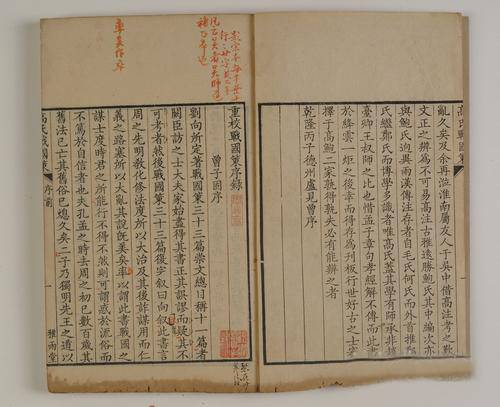 高氏戰國策
亂久矣及余再涖淮南屬友人于吳中借高注考之歎
文正之辨為不可易高注古雅遠勝鮑氏其中編次亦
與鮑氏迥異兩漢傳注存者自毛氏何氏而外首推
氏繼鄭氏而博學多識者唯高氏蓋其學有師承非趙
臺卿王叔師之比也惜孟子章句孝經解不傳而此書
於絳雲一炬之後幸而得存為刊板行世好古之士審
擇于高鮑二家孰得孰失必有能辨之者
乾隆丙子德州盧見曾序
重校戰國策序錄
曾子固序
劉向所定著戰國策三十三篇崇文總目稱十一篇者
闕臣訪之士大夫家始盡得其書正其誤謬而疑其不
可考者然後戰國策三十三篇復完叙曰向叙此書言
周之先明教化修法度所以大治及其後詐謀用而仁
義之路塞所以大亂其說既美矣率以謂此書戰國之
謀士度時君之所能行不得不然則可謂惑於流俗而
不篤於自信者也夫孔孟之時去周之初已數百歲其
舊法已亡其舊俗已熄久矣二子乃獨明先王之道以
高氏戰國策 序前 一 雅雨堂